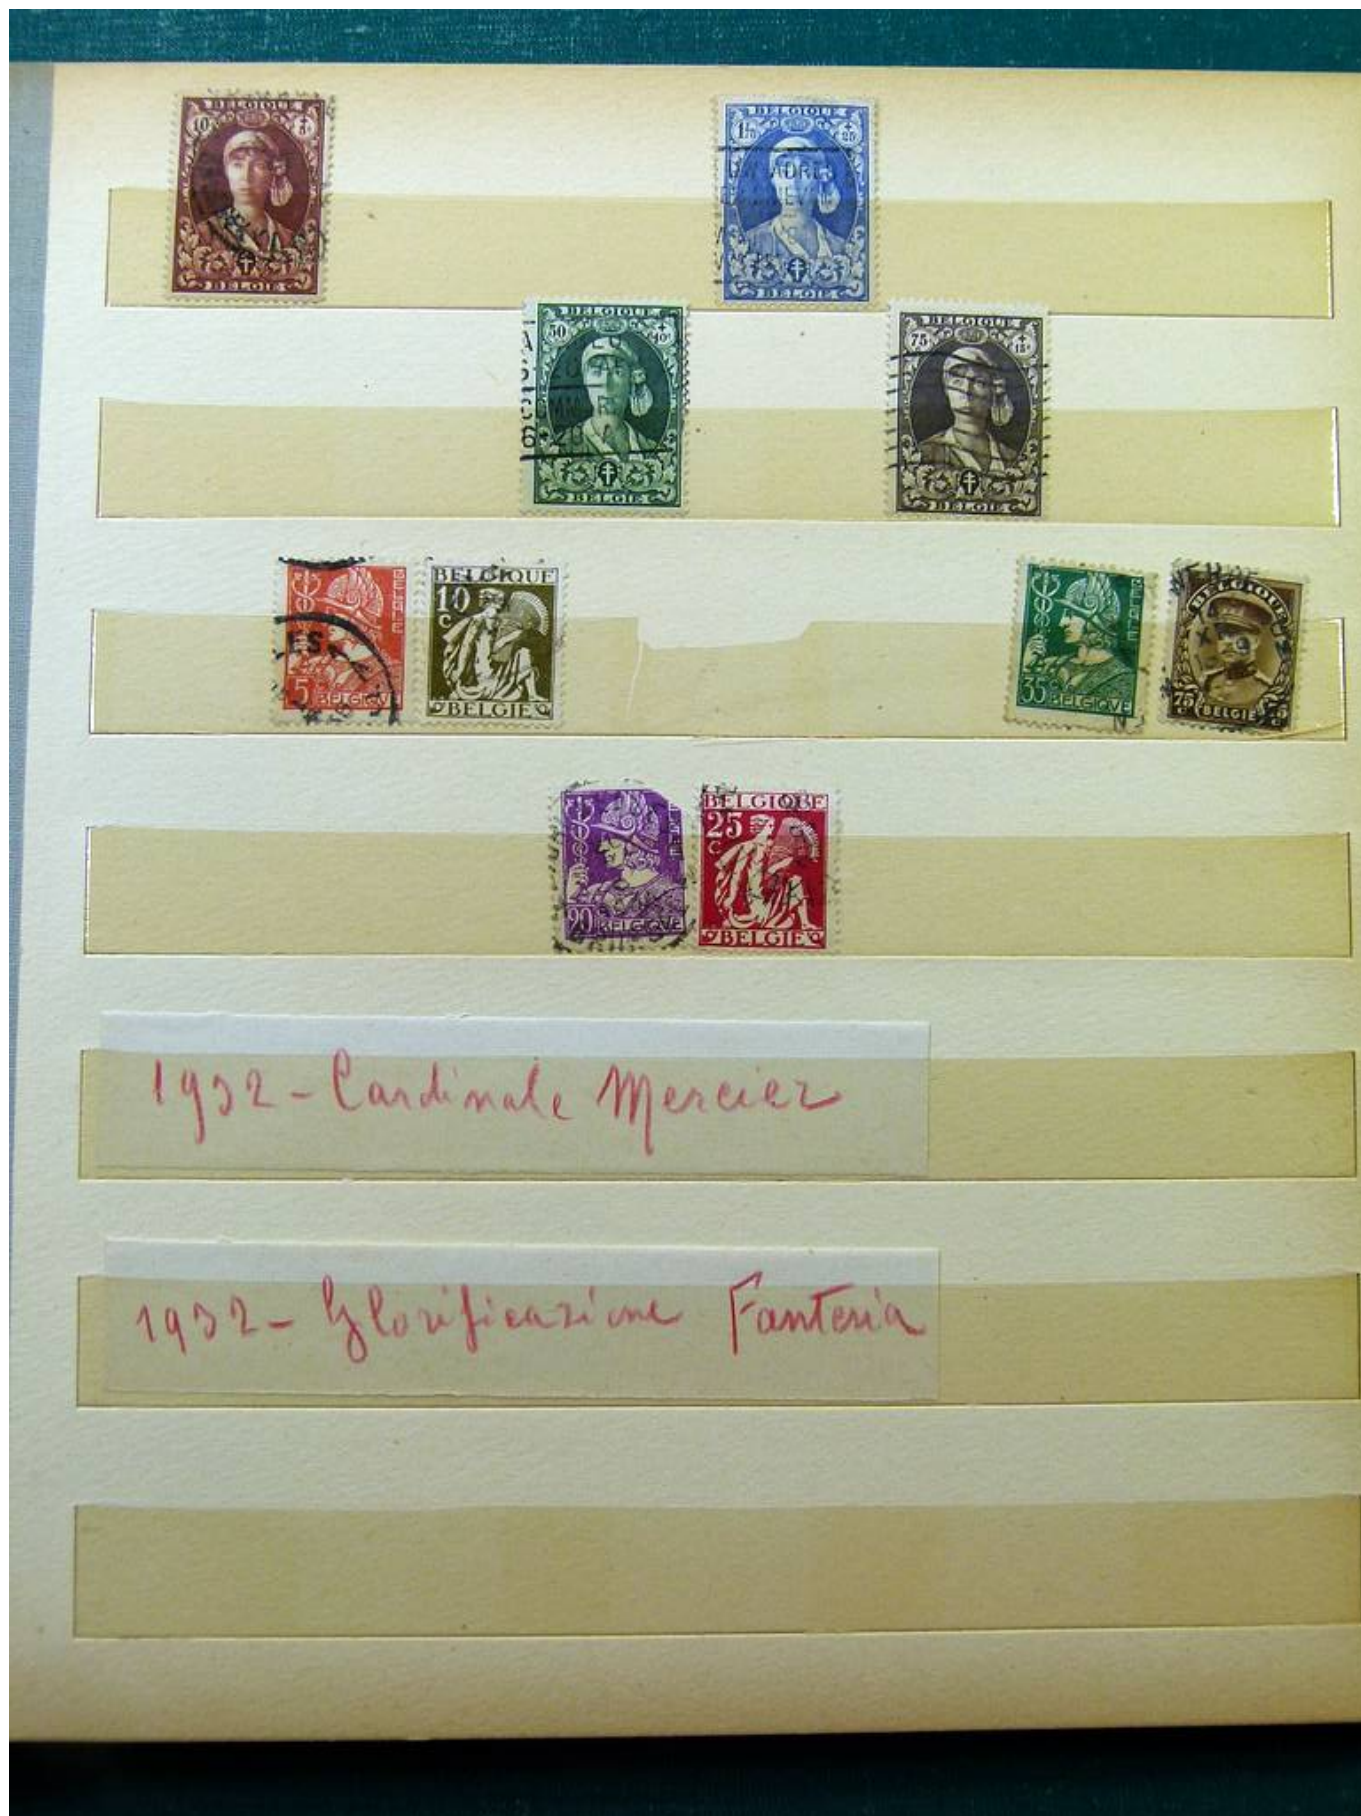 BELGIQUE
10c + 5c
BELGIE
BELGIQUE
1F75 + 25c
UW ADRES
BELGIE
BELGIQUE
50 + 40c
6-20
BELGIE
BELGIQUE
75 + 15c
BELGIE
BELGIE
5 BELGIQVE
BELGIQUE
10
C
BELGIE
BELGIE
35 BELGIQVE
BELGIQUE
75 c + 5 c
BELGIE
BELGIE
20 BELGIQVE
BELGIQUE
25
C
BELGIE
1932 - Cardinale Mercier
1932 - Glorificazione Fanteria